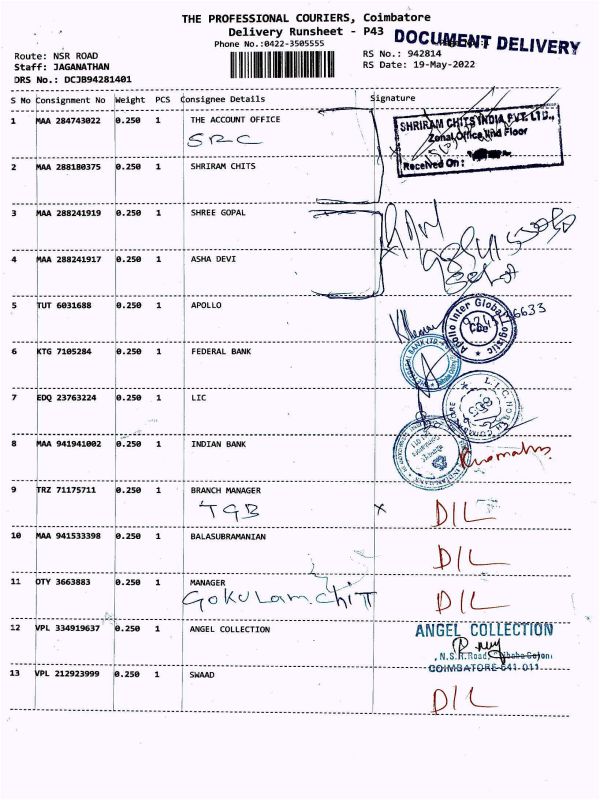 THE PROFESSIONAL COURIERS, Coimbatore
Delivery Runsheet - P43
DOCUMENT DELIVERY
Phone No.:0422-3505555
Route: NSR ROAD
RS No.: 942814
Staff: JAGANATHAN
RS Date: 19-May-2022
DRS No.: DCJB94281401
S No Consignment No Weight PCS Consignee Details Signature
1 MAA 284743022 0.250 1 THE ACCOUNT OFFICE
SRC
SHRIRAM CHITS INDIA PVT. LTD.,
Zonal Office IInd Floor
Received On :
2 MAA 288180375 0.250 1 SHRIRAM CHITS
3 MAA 288241919 0.250 1 SHREE GOPAL
4 MAA 288241917 0.250 1 ASHA DEVI
5 TUT 6031688 0.250 1 APOLLO
Apollo Inter Global Logistic
Cbe
6 KTG 7105284 0.250 1 FEDERAL BANK
7 EDQ 23763224 0.250 1 LIC
8 MAA 941941002 0.250 1 INDIAN BANK
9 TRZ 71175711 0.250 1 BRANCH MANAGER
TGB x D/L
10 MAA 941533398 0.250 1 BALASUBRAMANIAN
D/L
11 OTY 3663883 0.250 1 MANAGER
Gokulam.chiTT D/L
12 VPL 334919637 0.250 1 ANGEL COLLECTION
ANGEL COLLECTION
N.S.R.Road,
COIMBATORE-641 011
13 VPL 212923999 0.250 1 SWAAD
D/L